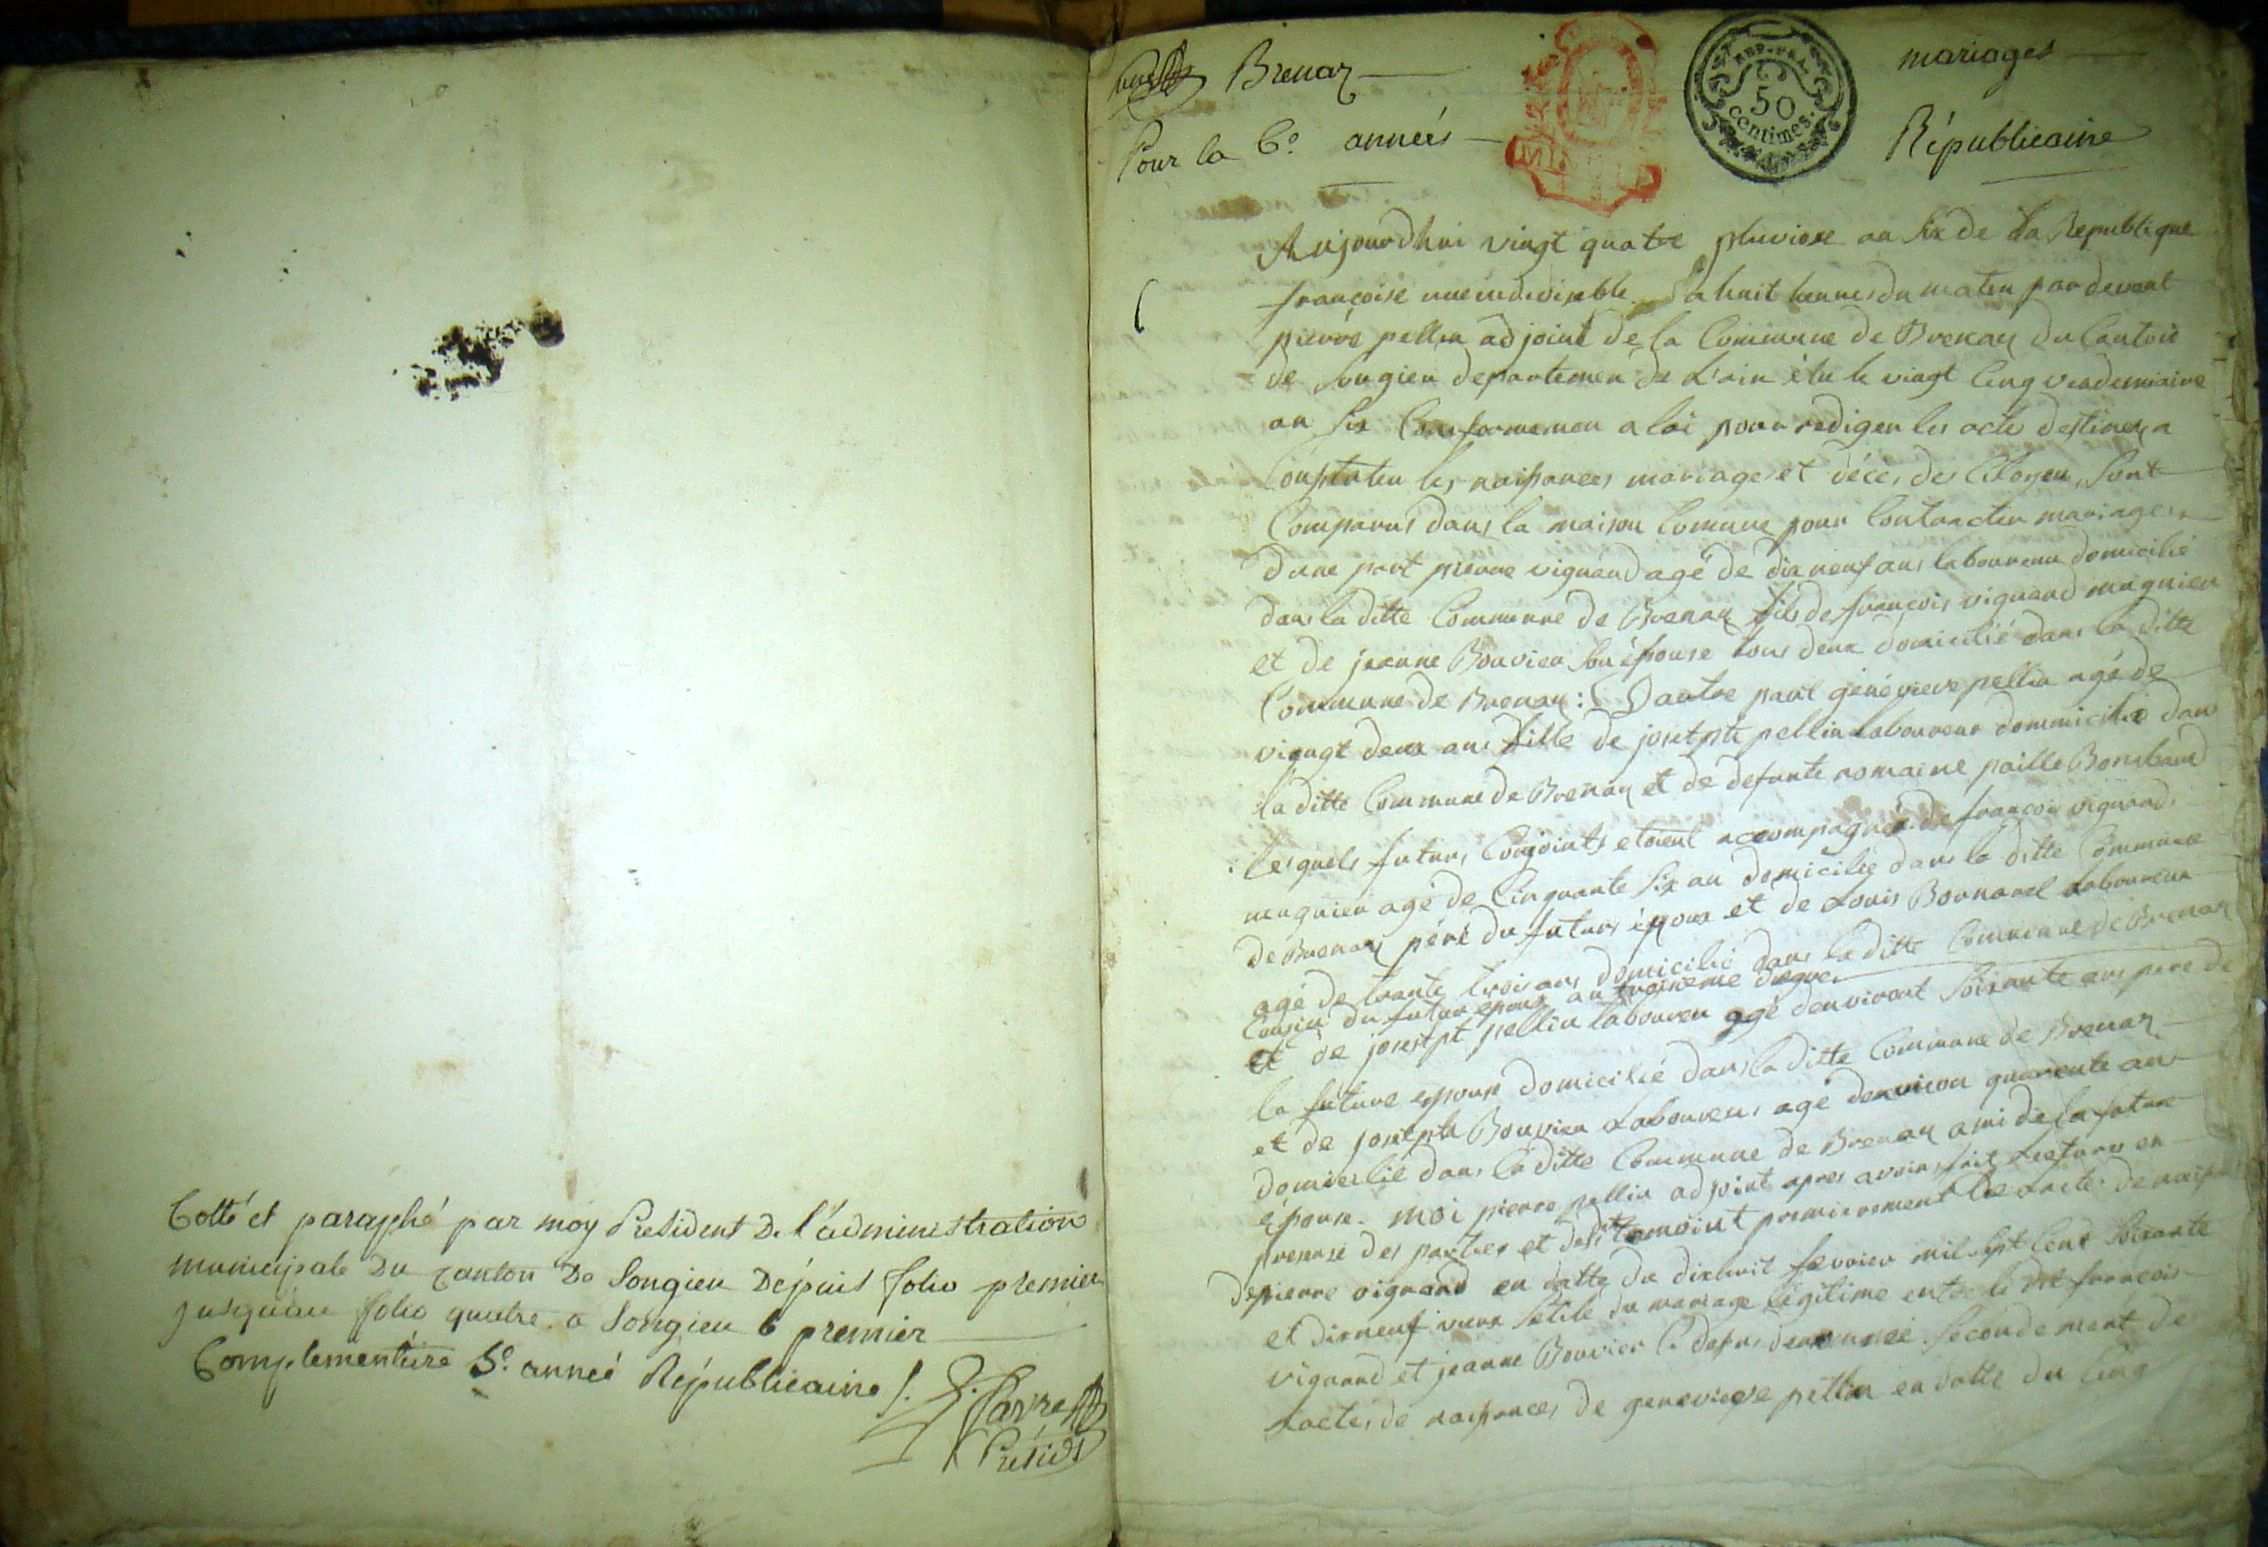 Cotté et paraphé par moy President De l'administration
municipale Du canton De Songieu Depuis folio premier
jusqu'au folio quatre. a Songieu 6 premier
Complementaire 5e. année Républicaine /.
Présidt
Brenaz
mariages
REP. FRA.
50
centimes.
Pour la 6e. années
Républicaine
Aujourdhui vingt quatre pluviose an six de la Republique
françoise une indivisible à huit heures du matin pardevant
pierre pellin adjoint de la Commune de Brenaz du Canton
de songieu departemen de L'ain élu le vingt Cinq vendemiaire
an six Conformemen a loi pour rediger les acte destinez a
Constater les naissances mariages et décès des Citoyen, sont
Comparus dans la maison Comune pour Contracter mariages
dune part pierre vignand agé de dix neuf ans laboureur domicilié
dans la ditte Commune de Brenaz fils de françois vignand magnien
et de jeanne Bouvier son épouse tous deux domicilié dans la ditte
Commune de Brenaz : Dautre part géneviève pellin agé de
vingt deux ans fille de joseph pellin laboureur dommicilié dans
la ditte Commune de Brenaz et de defunte romaine paille Bombaud
lesquels futurs Conjoints etoient accompagnés de françois vignand
magnien agé de Cinquante six an domicilié dans la ditte Commune
de Brenaz père du futurs époux et de Louis Bornarel laboureur
agé de trante trois ans domicilié dans la ditte Commune de Brenaz
Cousin du futur epoux au troisieme degre
et de josept pellin laboureu agé denviront soixante ans père de
la future epouse domicilié dans la ditte Commune de Brenaz
et de joseph Bouvier Laboureur agé denviron quarente an
domicilié dans la ditte Commune de Brenaz ami de la future
épouse. moi pierre pellin adjoint apres avoir fait Lecture en
presense des parties et desdit temoint premierement de Lacte de naiss
de pierre vignand en datte du dixhuit fevrier mil sept Cent soixante
et dixneuf vieux stile du mariage legitime entre le dit françois
vignand et jeanne Bouvier Ci desus denommée secondement de
Lactes de naissances de genevieve pellin en datte du Cinq